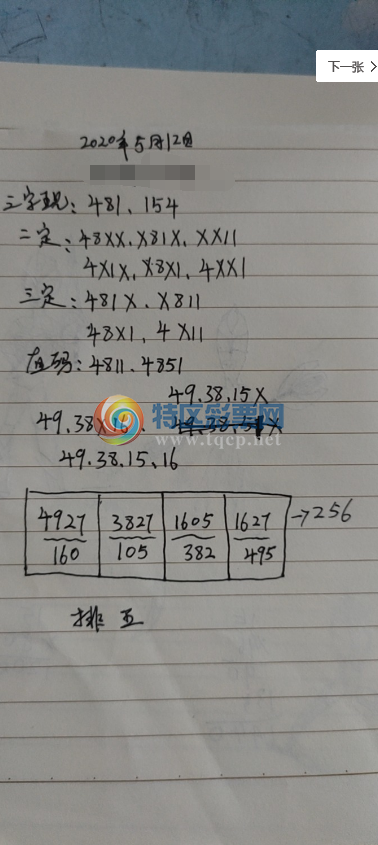 下一张
2020年5月12日
三字现: 481、154
二定: 48XX、X81X、XX11
4X1X、X8X1、4XX1
三定: 481X、X811
48X1、4X11
直码: 4811、4851
49.38.15X
49.38X16、
特区彩票网
www.tqcp.net
49.38.15、16
4927 3827 1605 1627 →256
160 105 382 495
排五